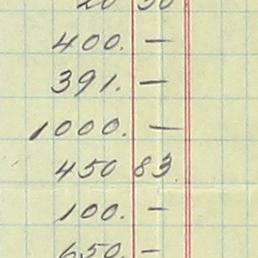 20 50
400. —
391. —
1000. —
450 83.
100. —
650. —